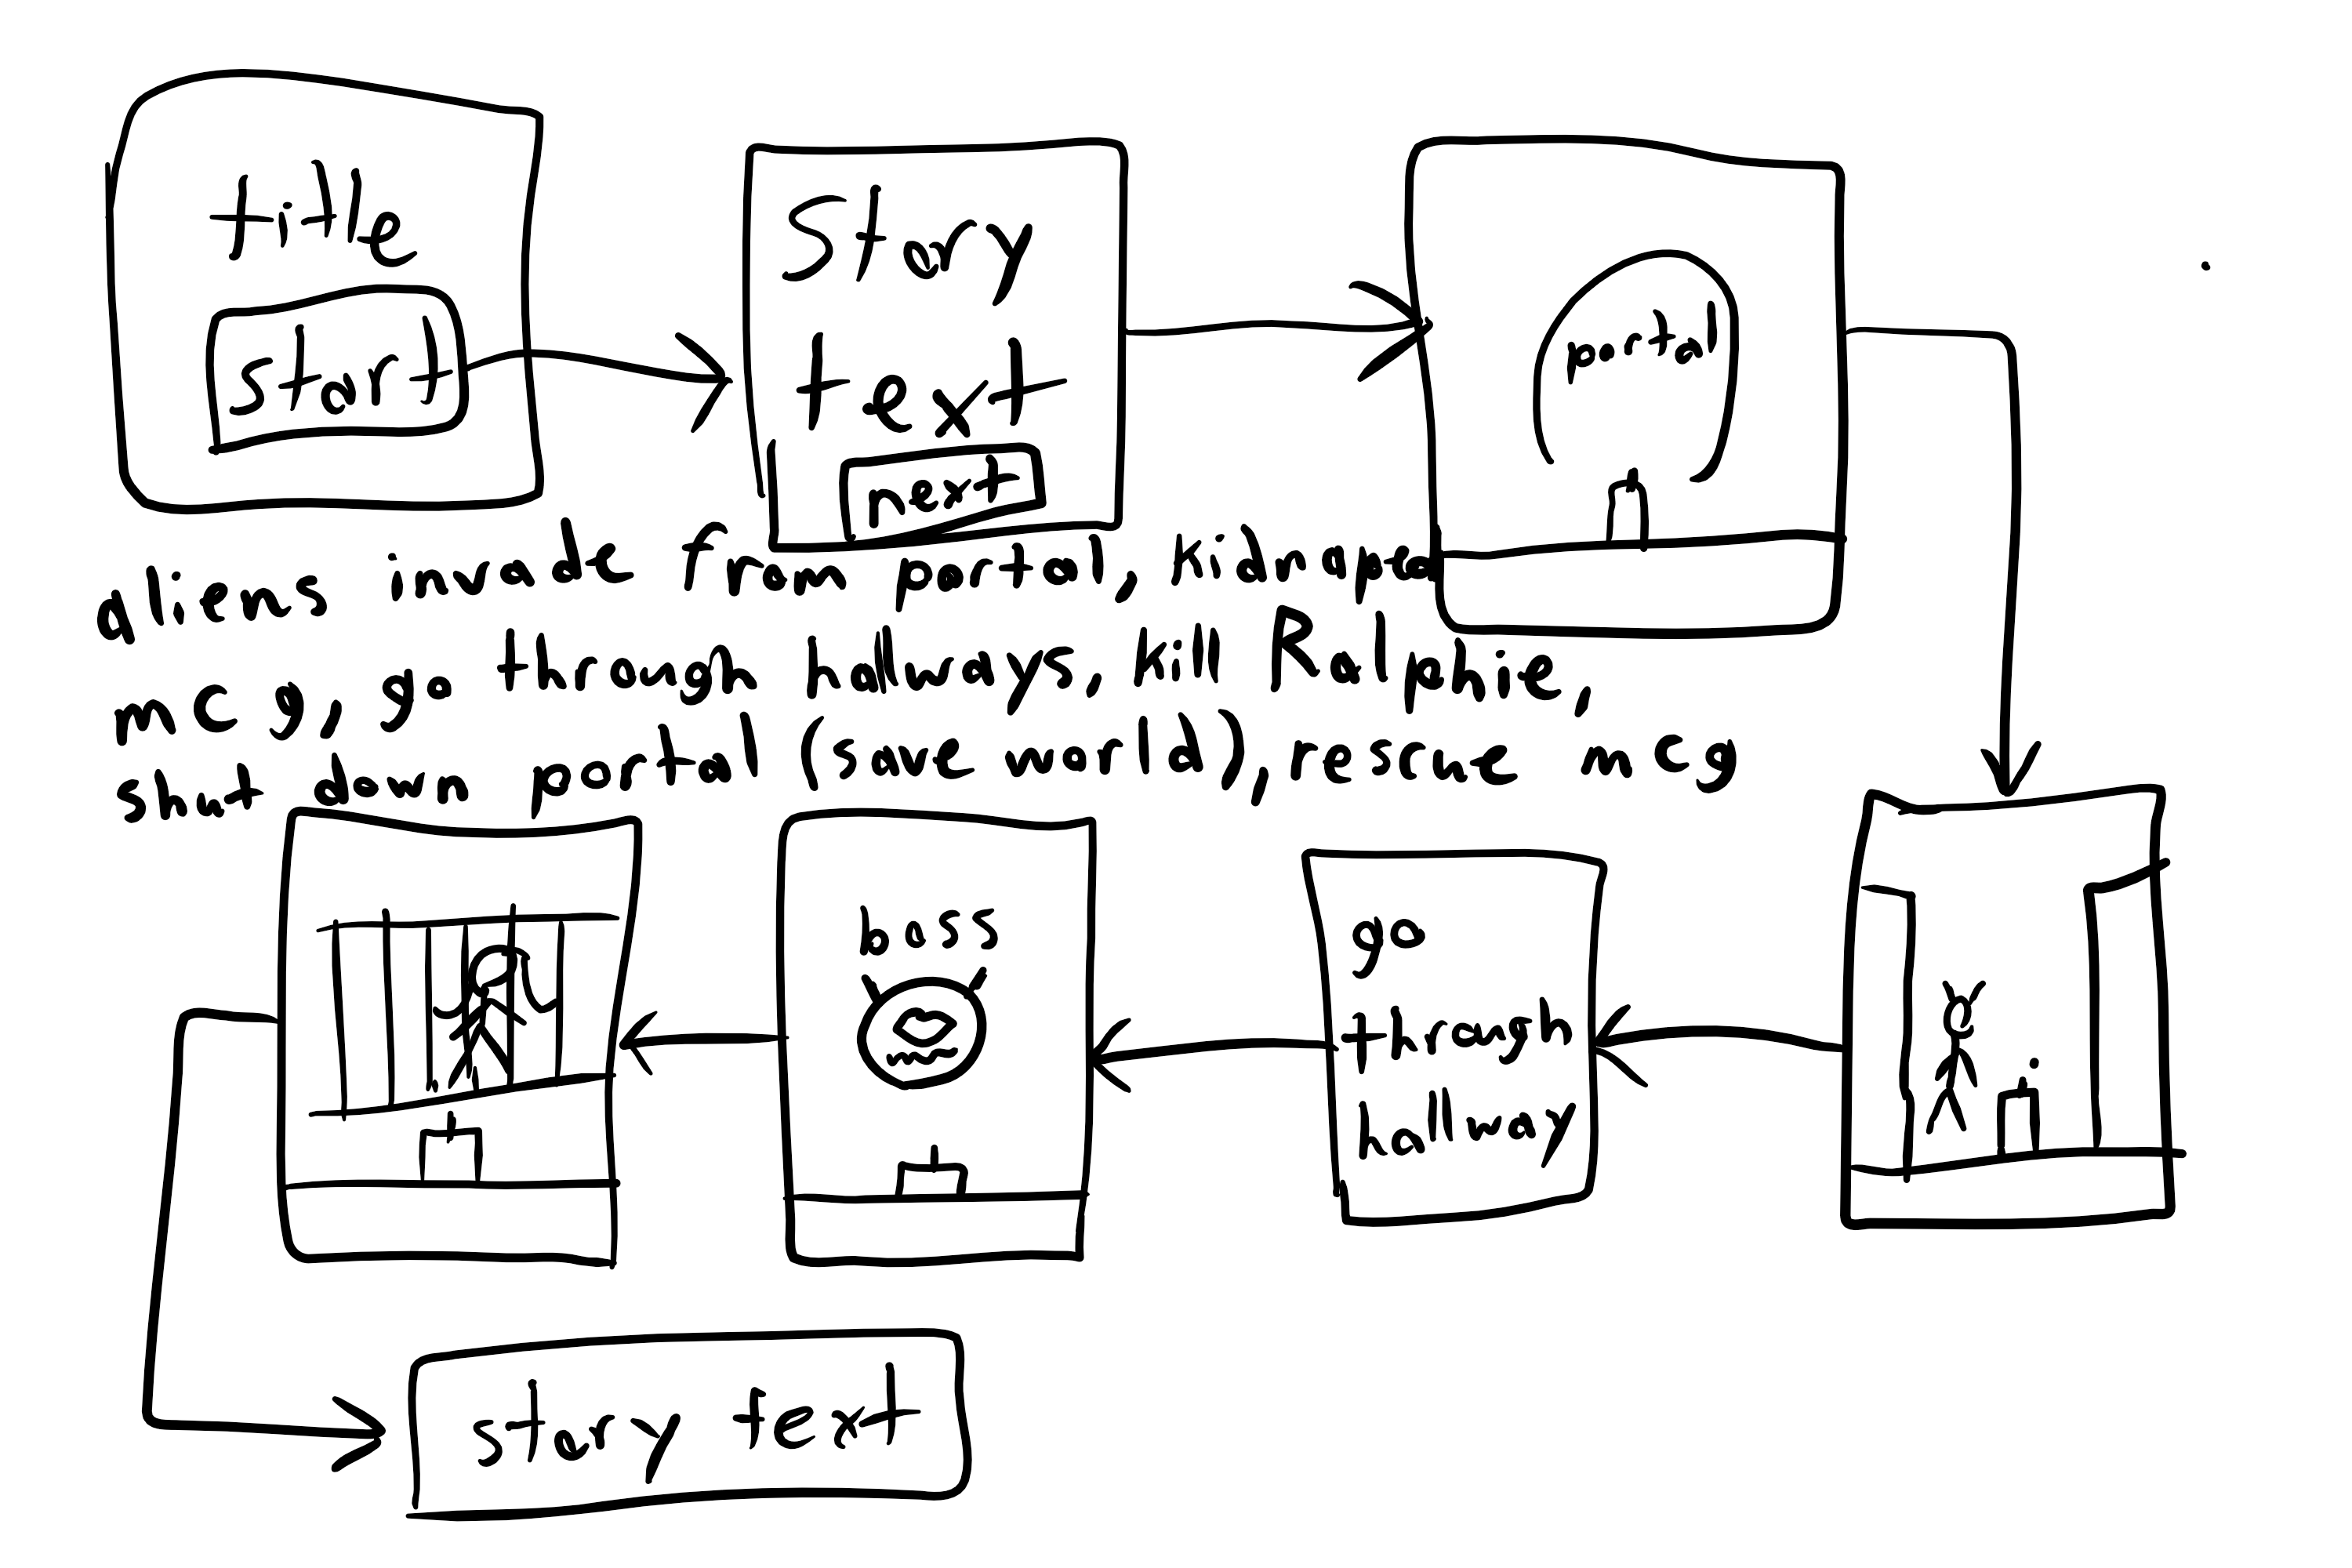 title
start
Story
text
next
portal
aliens invade from portal, kidnapped
mcg, go through hallways, kill Ralphie,
shut down portal (save world), rescue mcg
boss
go
through
hallway
story text